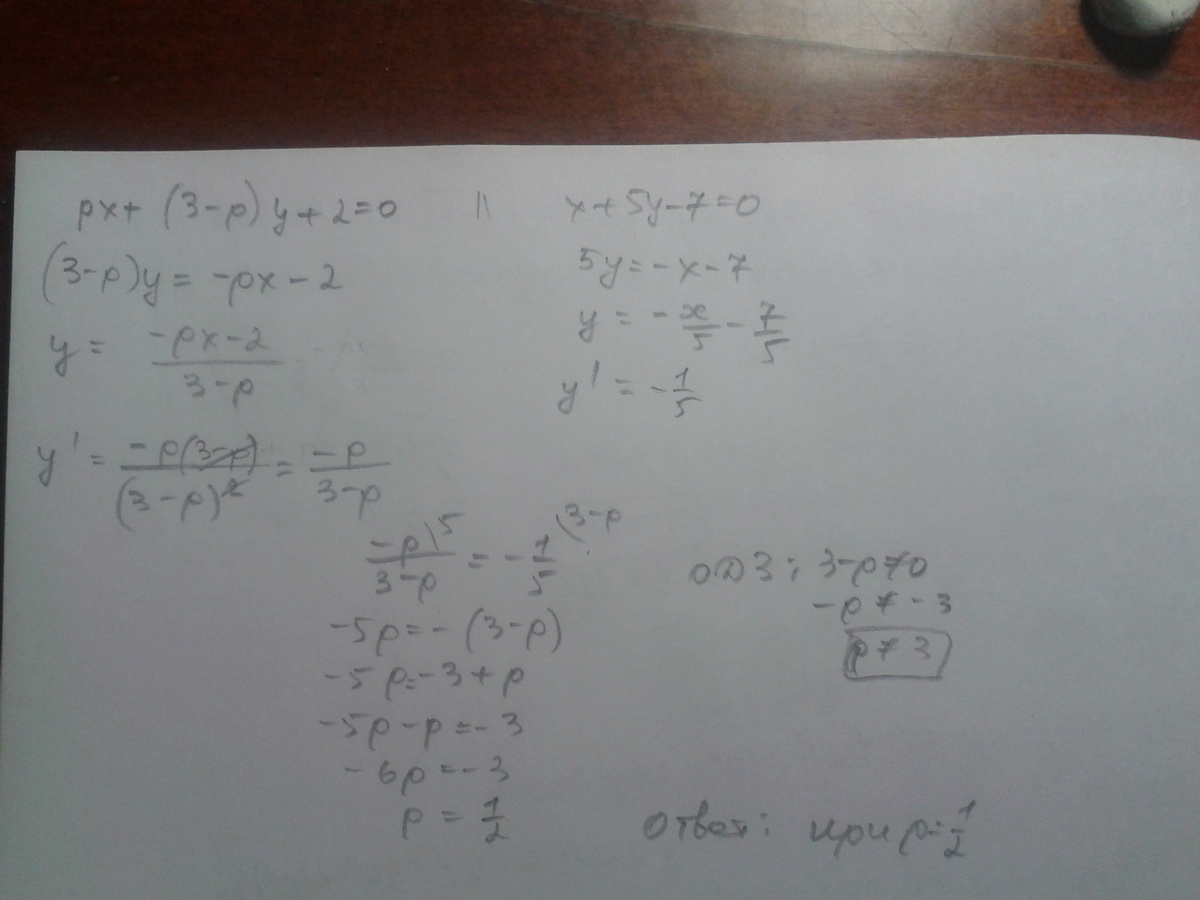 px + (3-p)y + 2 = 0 || x + 5y - 7 = 0
(3-p)y = -px - 2
y = (-px-2)/(3-p)
y' = -p(3-p)/(3-p)² = -p/(3-p)
5y = -x - 7
y = -x/5 - 7/5
y' = -1/5
-p\5/(3-p) = -1/5 \3-p
-5p = -(3-p)
-5p = -3 + p
-5p - p = -3
-6p = -3
p = 1/2
ОДЗ: 3-p≠0
-p ≠ -3
p ≠ 3
Ответ: при p = 1/2